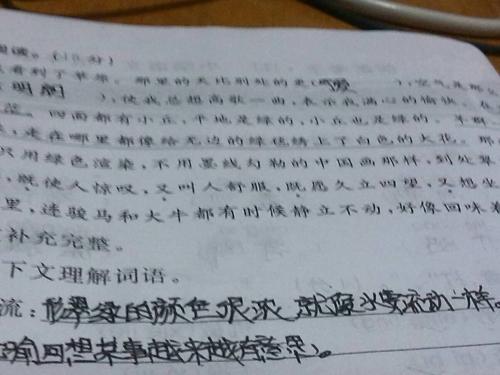 阅读。(10分)
看到了草原。那里的天比别处的更(可爱),空气是那
明朗),使我总想高歌一曲,表示我满心的愉快。在
四面都有小丘,平地是绿的,小丘也是绿的。羊群
走在哪里都像给无边的绿毯绣上了白色的大花。那
只用绿色渲染,不用墨线勾勒的中国画那样,到处翠
既使人惊叹,又叫人舒服,既愿久立四望,又想坐
里,连骏马和大牛都有时候静立不动,好像回味着
补充完整。
下文理解词语。
流:形翠绿的颜色很浓,就像水要流动一样。
回想某事越来越有